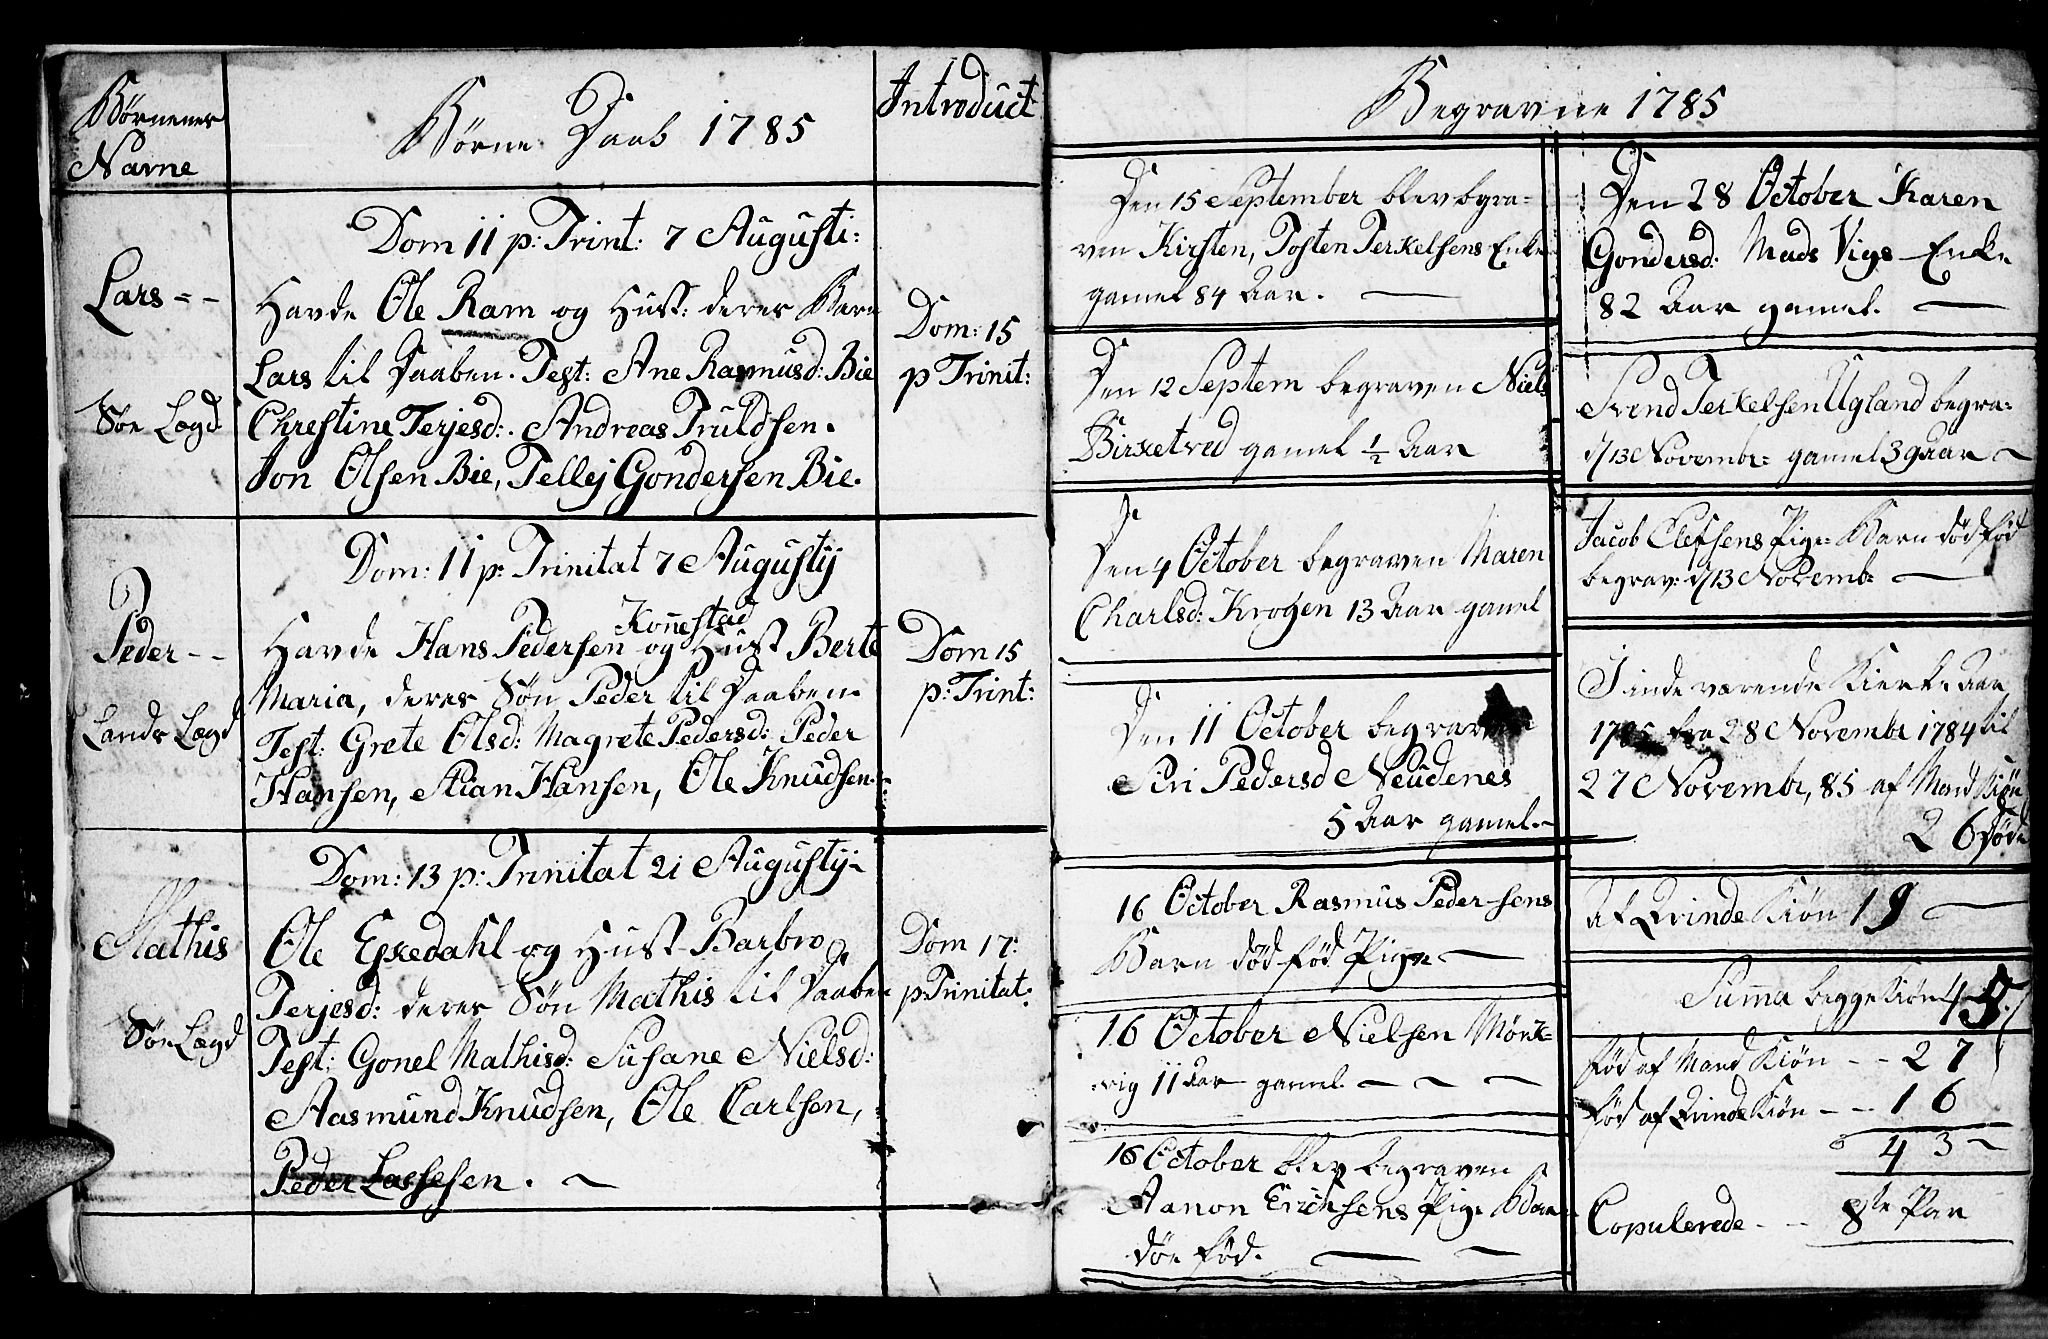 Børnenes
Navne
Børne Daab 1785
Introduct
Dom 11 p: Trint: 7 Augusti:
Lars - -
Søe Lægd
Havde Ole Ram og Hust: deres Barn
Lars til Daaben. Test: Ane Rasmusd: Bie
Chrestine Terjesd:. Andreas Truldsen.
Jon Olsen Bie, Tellej Gondersen Bie.
Dom: 15
p Trinit:
Dom: 11 p: Trinitat 7 Augustij
Peder - -
Lands Lægd
Konnestad
Havde Hans Pedersen og Hust Berte
Maria, deres Søn Peder til Daaben
Test: Grete Olsd: Magrete Pedersd: Peder
Hansen, Stian Hansen, Ole Knudsen.
Dom 15
p: Trint:
Dom: 13 p: Trinitat 21 Augustij
Mathis
Søe Lægd
Ole Egkedahl og Hust Barbro
Terjesd: deres Søn Mathis til Daaben
Test: Gonel Mathisd: Susane Nielsd:
Aasmund Knudsen, Ole Carlsen,
Peder Lassesen.
Dom 17:
p Trinitat:
Begravne 1785
Den 15 September blev begra=
ven Kirsten, Tosten Terkelsens Enke
gamel 84 Aar.
Den 12 Septem begraven Niels
Birketved gamel ½ Aar
Den 4 October begraven Maren
Charlsd: Krogen 13 Aar gamel
Den 11 October begraven
Siri Pedersd Neudenes
5 Aar gamel.
16 October Rasmus Pedersens
Barn død fød Pige
16 October Nielsen Mørk=
vig 11 Aar gamel
16 October blev begraven
Aanon Erichsens Pige Barn
døe fød.
Den 28 October Karen
Gondersd: Mads Vigs Enke
82 Aar gamel.
Svend Terkelsen Ugland begra=
d/13 Novembr: gamel 39 Aar
Jacob Olefsens Pige Barn død fød
begrav: d/13 Novemb:
I inde værende Kierke Aar
1785 fra 28 Novembr 1784 til
27 Novembr, 85 af Mand Kiøn
26 Døde
Af Qvinde Kiøn 19
Summa begge Kiøn 45.
fød af Mand Kiøn - - 27
fød af Qvinde Kiøn - - 16
43
Copulerede - - 8te Par